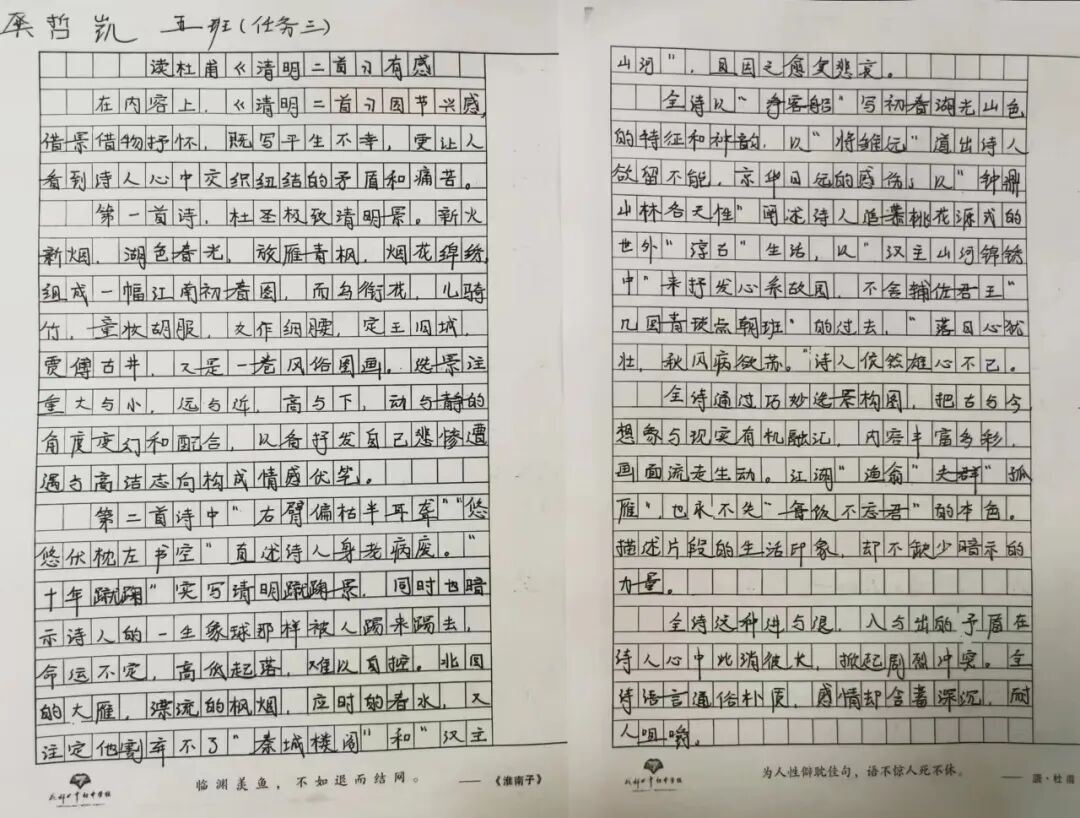 吴哲凯 五班(任务三)
读杜甫《清明二首》有感
在内容上，《清明二首》因节兴感，
借景借物抒怀，既写平生不幸，更让人
看到诗人心中交织纽结的矛盾和痛苦。
第一首诗，杜圣极致清明景。新火
新烟，湖色春光，放雁青枫，烟花绵绣，
组成一幅江南初春图，而鸟衔花，儿骑
竹，童妆胡服，女作细腰，定王旧城，
贾傅古井，又是一卷风俗图画。选景注
重大与小，远与近，高与下，动与静的
角度变幻和配合，以备抒发自己悲惨遭
遇与高洁志向构成情感伏笔。
第二首诗中"右臂偏枯半耳聋""悠
悠伏枕左书空"直述诗人身老病废。"
十年蹴踘"实写清明蹴踘景，同时也暗
示诗人的一生象球那样被人踢来踢去，
命运不定，高低起落，难以自控。北国
的大雁，漂流的枫烟，应时的春水，又
注定他割弃不了"秦城楼阁"和"汉主
山河"，且因之愈发悲哀。
全诗以"争客船"写初春湖光山色
的特征和神韵，以"将雏远"道出诗人
欲留不能，京华日远的感伤；以"钟鼎
山林各天性"阐述诗人追慕桃花源式的
世外"淳古"生活，以"汉主山河锦绣
中"来抒发心系故园，不舍辅佐君王"
几回青琐点朝班"的过去，"落日心犹
壮，秋风病欲苏。"诗人依然雄心不已。
全诗通过巧妙选景构图，把古与今，
想象与现实有机融汇，内容丰富多彩，
画面流走生动。江湖"渔翁""失群"孤
雁"，也永不失"每饭不忘君"的本色。
描述片段的生活印象，却不缺少暗示的
力量。
全诗这种进与退，入与出的矛盾在
诗人心中此消彼大，掀起剧烈冲突。全
诗语言通俗朴质，感情却含蓄深沉，耐
人咀嚼。
临渊羡鱼，不如退而结网。 ——《淮南子》
为人性僻耽佳句，语不惊人死不休。 ——唐·杜甫